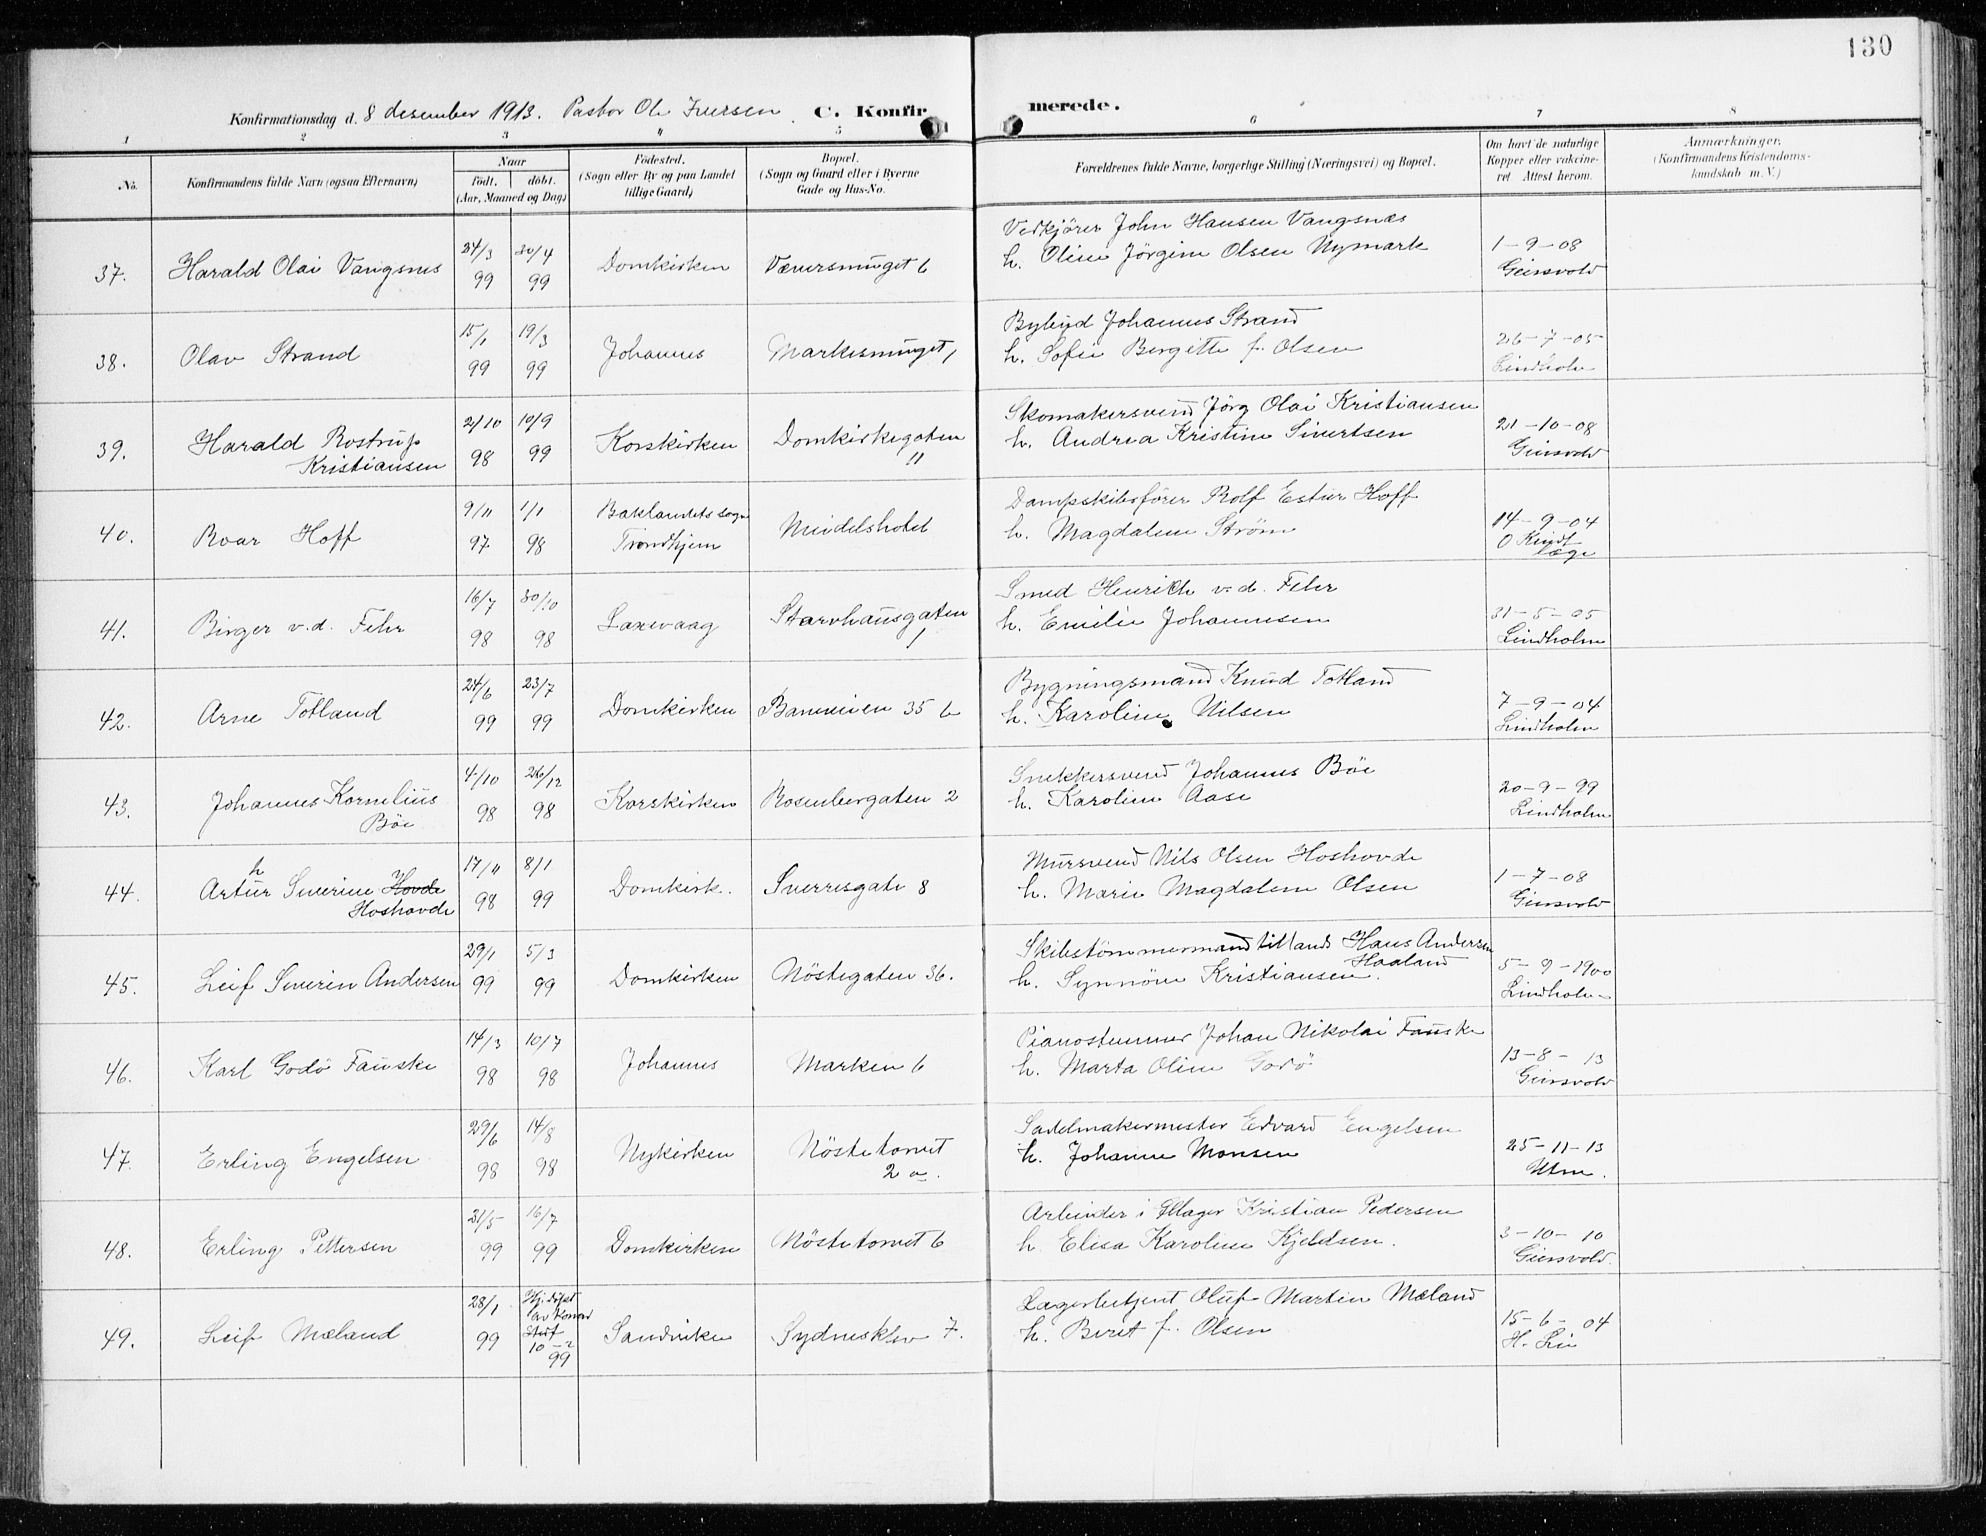 130
Konfirmationsdag d. 8 desember 1913. Pastor Ole Iversen. C. Konfirmerede.
1 2 3 4 5 6 7 8
No.
Konfirmandens fulde Navn (ogsaa Efternavn)
Naar
födt. döbt.
(Aar, Maaned og Dag)
Födested.
(Sogn eller By og paa Landet
tillige Gaard)
Bopæl.
(Sogn og Gaard eller i Byerne
Gade og Hus-No.
Forældrenes fulde Navne, borgerlige Stilling (Næringsvei) og Bopæl.
Om havt de naturlige
Kopper eller vakcine-
ret. Attest herom.
Anmærkninger.
(Konfirmandens Kristendoms-
kundskab m. V.)
37. Harald Olai Vangsnes
24/3 99
30/4 99
Domkirken
Væversmuget 6
Vedkjører John Hansen Vangsnes
h. Oline Jörgine Olsen Nymark
1-9-08
Geirsvold
38. Olav Strand
15/1 99
19/3 99
Johannes
Markesmuget 1
Bybud Johannes Strand
h. Sofie Bergitte f. Olsen
26-7-05
Lindholm
39. Harald Rostrup
Kristiansen
21/10 98
10/9 99
Korskirken
Domkirkegaten
11
Skomakersvend Jörg Olai Kristiansen
h. Andrea Kristine Sivertsen
21-10-08
Geirsvold
40. Roar Hoff
9/11 97
1/1 98
Baklandets sogn
Trondhjem
Mindelshotel
Dampskibsförer Rolf Ester Hoff
h. Magdalene Ström
14-9-04
læge
41. Birger v.d. Fehr
16/7 98
30/10 98
Laxevaag
Starvhausgaten
1
Smed Henrich v.d. Fehr
h. Emilie Johannesen
31-5-05
Lindholm
42. Arne Totland
24/6 99
23/7 99
Domkirken
Baneveien 35 b
Bygningsmand Knud Totland
h. Karoline Nilsen
7-9-04
Lindholm
43. Johannes Kornelius
Böe
4/10 98
26/12 98
Korskirken
Rosenbergaten 2
Snekkersvend Johannes Böe
h. Karoline Aase
20-9-99
Lindholm
h
44. Artur Severine Hovde
Hoshovde
17/11 98
8/1 99
Domkirk.
Sverresgate 8
Mursvend Nils Olsen Hoshovde
h. Marie Magdalene Olsen
1-7-08
Geirsvold
45. Leif Severin Andersen
29/1 99
5/3 99
Domkirken
Nöstegaten 36.
Skibstömmermand tillands Hans Andersen
Haaland
h. Synnöve Kristiansen.
5-9-1900
Lindholm
46. Karl Godö Fauske
14/3 98
10/7 98
Johannes
Marken 6
Pianostemmer Johan Nikolai Fauske
h. Marta Oline Godö
13-8-13
Geirsvold
47. Erling Engelsen
29/6 98
14/8 98
Nykirken
Nöstetorvet
2 a.
Sadelmakermester Edvard Engelsen
h. Johanne Monsen
25-11-13
48. Erling Pettersen
31/5 99
16/7 99
Domkirken
Nöstetorvet 6
Arbeider i Lager Kristian Pedersen
h. Elisa Karoline Kjeldsen.
3-10-10
Geirsvold.
49. Leif Mæland
28/1 99
Hj. döpt
av Konrad
10-2
99
Sandviken
Sydnesklev 7.
Lagerbetjent Oluf Martin Mæland
h. Beret f. Olsen
15-6-04
H. Lie